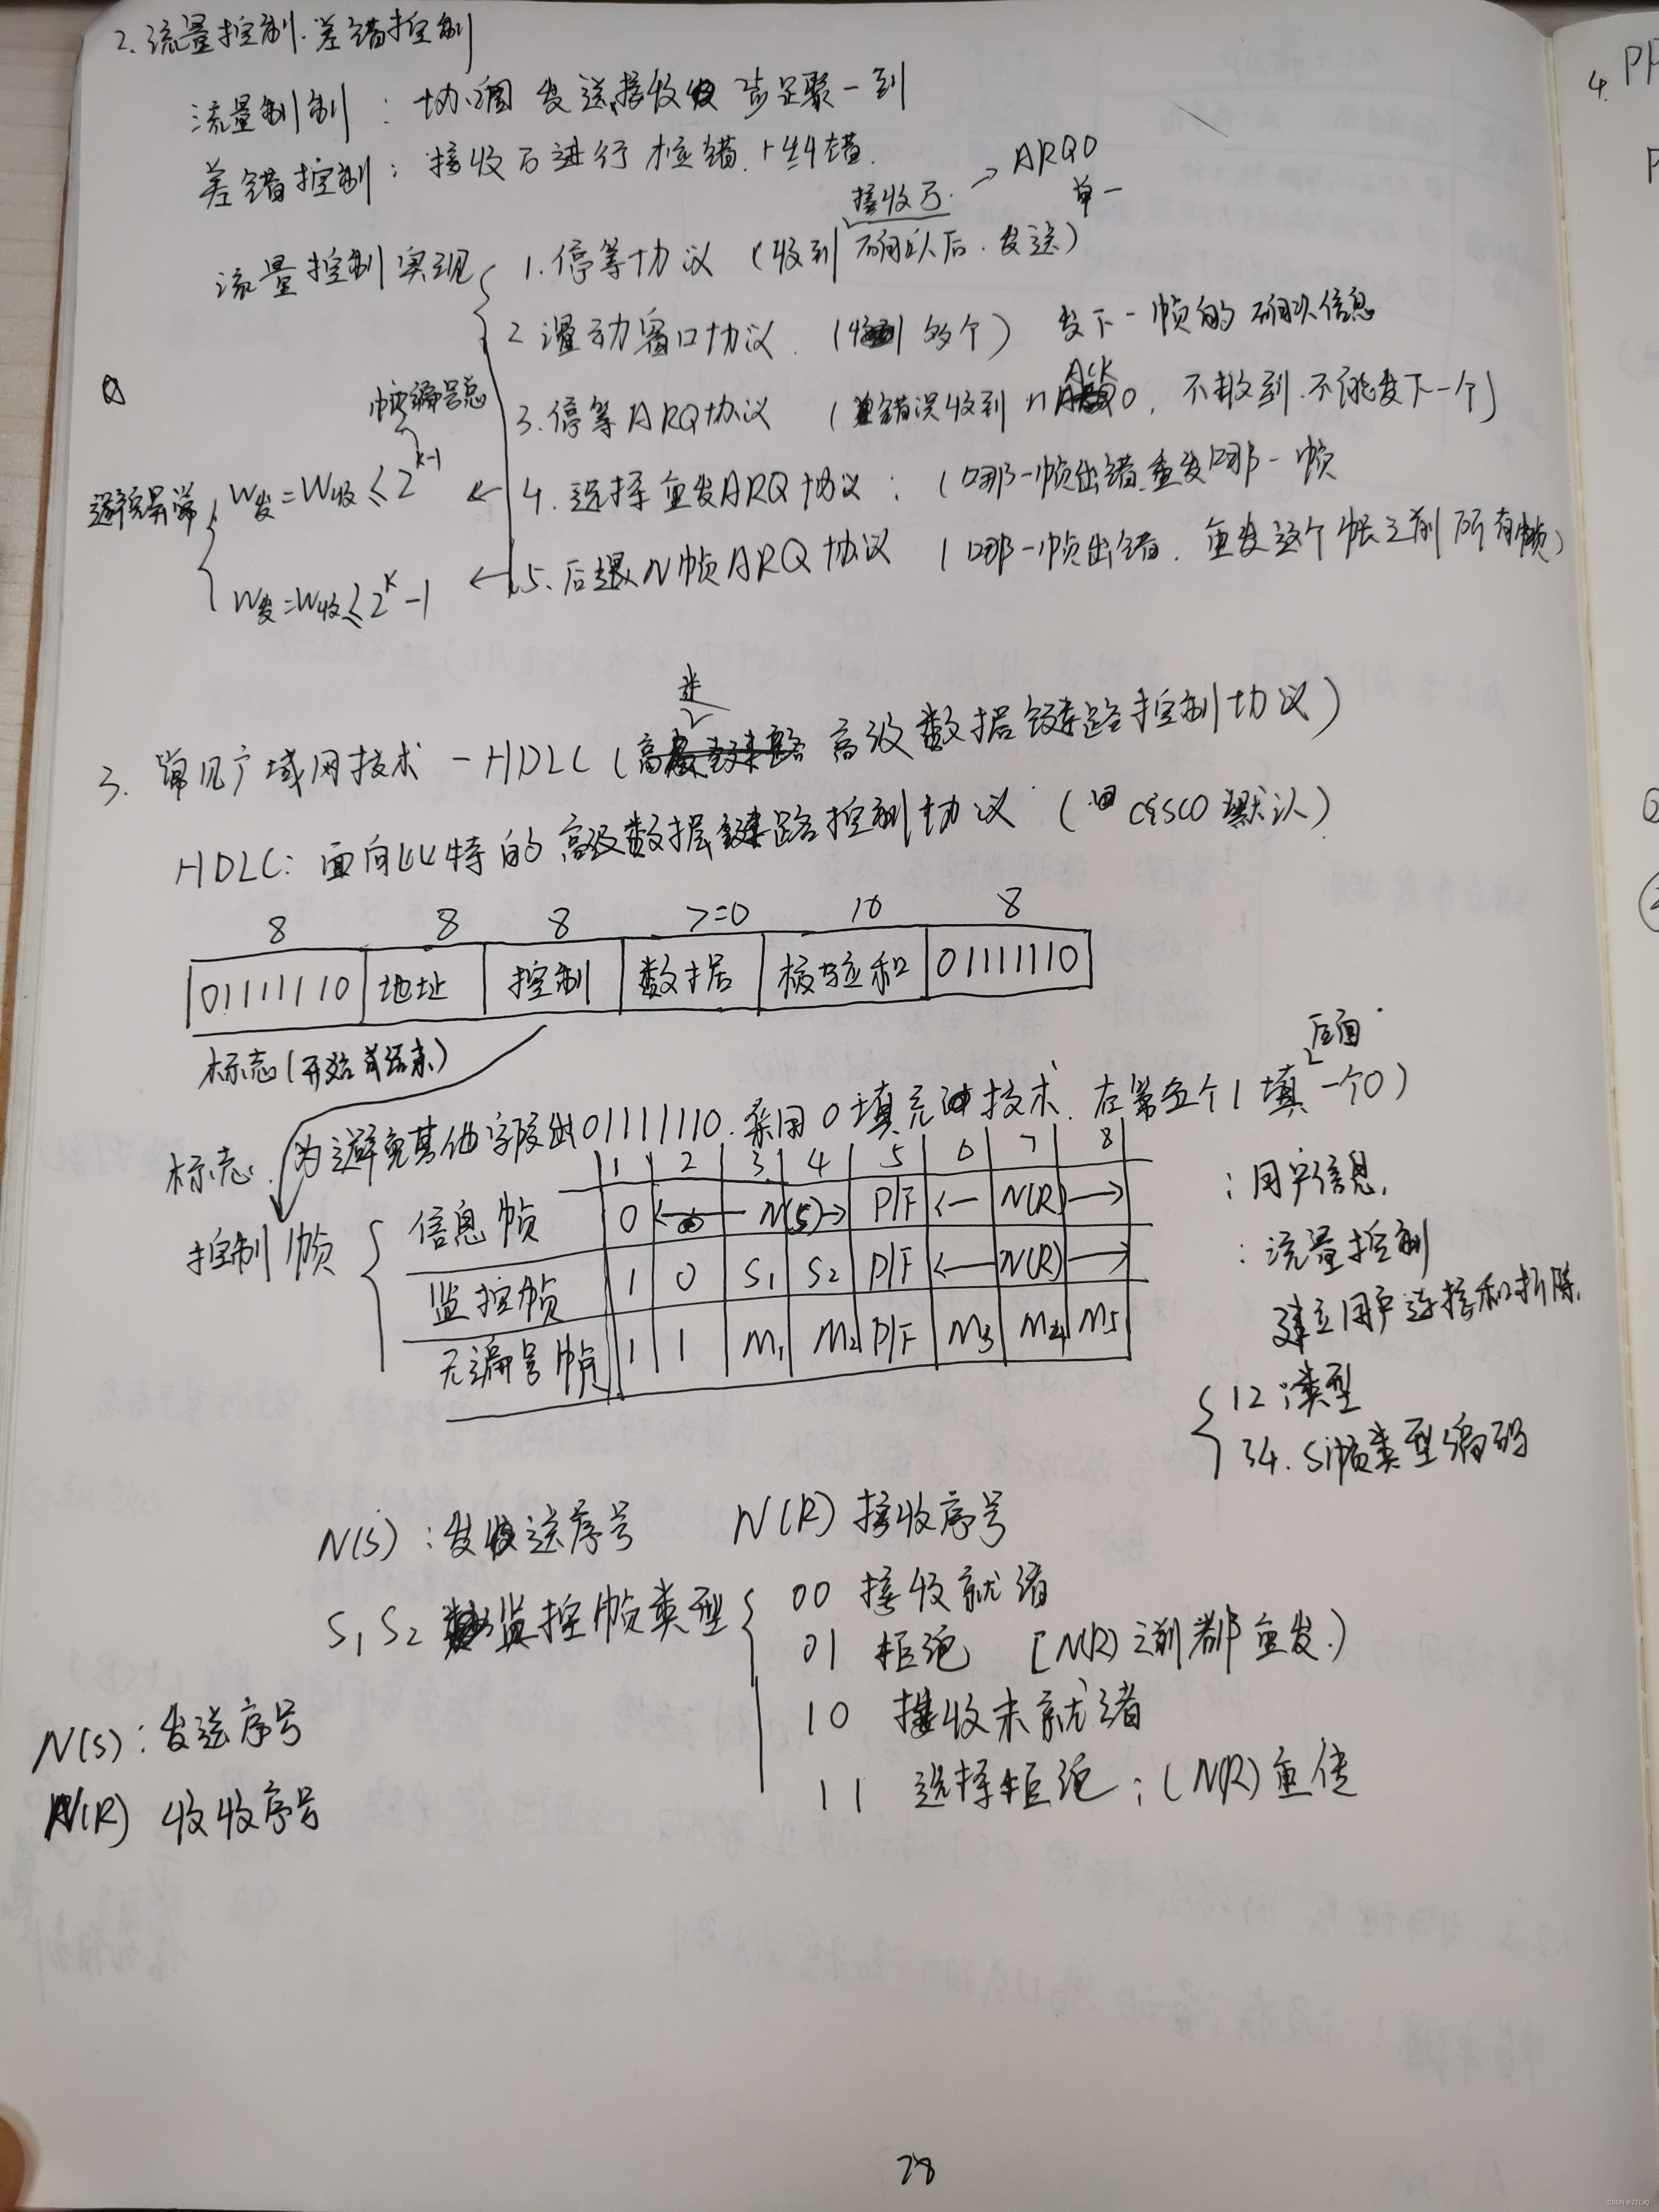 2. 流量控制. 差错控制
流量制制：协调 发送接收 步足聚一到
差错控制：接收后进行检错. 纠错.
接收方. → ARQ0
单一
流量控制实现 1. 停等协议 (收到 确认后. 发送)
2 滑动窗口协议. (收到 多个) 发下一帧的 确认信息
帧编号总 ACK
3. 停等ARQ协议 (错误收到 0, 不收到. 不能发下一个)
避免异常 W发=W收≤2^(k-1) ← 4. 选择重发ARQ协议：(哪一帧出错. 重发哪一帧
W发=W收≤2^k-1 ← 5. 后退N帧ARQ协议 (哪一帧出错. 重发这个帧之前所有帧)
3. 常见广域网技术 - HDLC (高级数据链路控制协议)
HDLC: 面向比特的高级数据链路控制协议 (cisco默认)
8 8 8 >=0 16 8
01111110 地址 控制 数据 校验和 01111110
标志 (开始或结束)
后面
标志. 为避免其他字段出01111110. 采用0填充技术. 在第五个1填一个0)
1 2 3 4 5 6 7 8
控制帧 信息帧 0 ← N(S)→ P/F ← N(R) → : 用户信息.
监控帧 1 0 S1 S2 P/F ← N(R) → : 流量控制
无编号帧 1 1 M1 M2 P/F M3 M4 M5 建立用户连接和拆除.
12 :类型
34. S帧类型编码
N(S) : 发送序号 N(R) 接收序号
S1 S2 监控帧类型 00 接收就绪
01 拒绝 [N(R)之前都重发.)
10 接收未就绪
11 选择拒绝 ; (N(R) 重传
N(S) : 发送序号
N(R) 收收序号
28
4. PP
P
CSDN @ZTLJQ